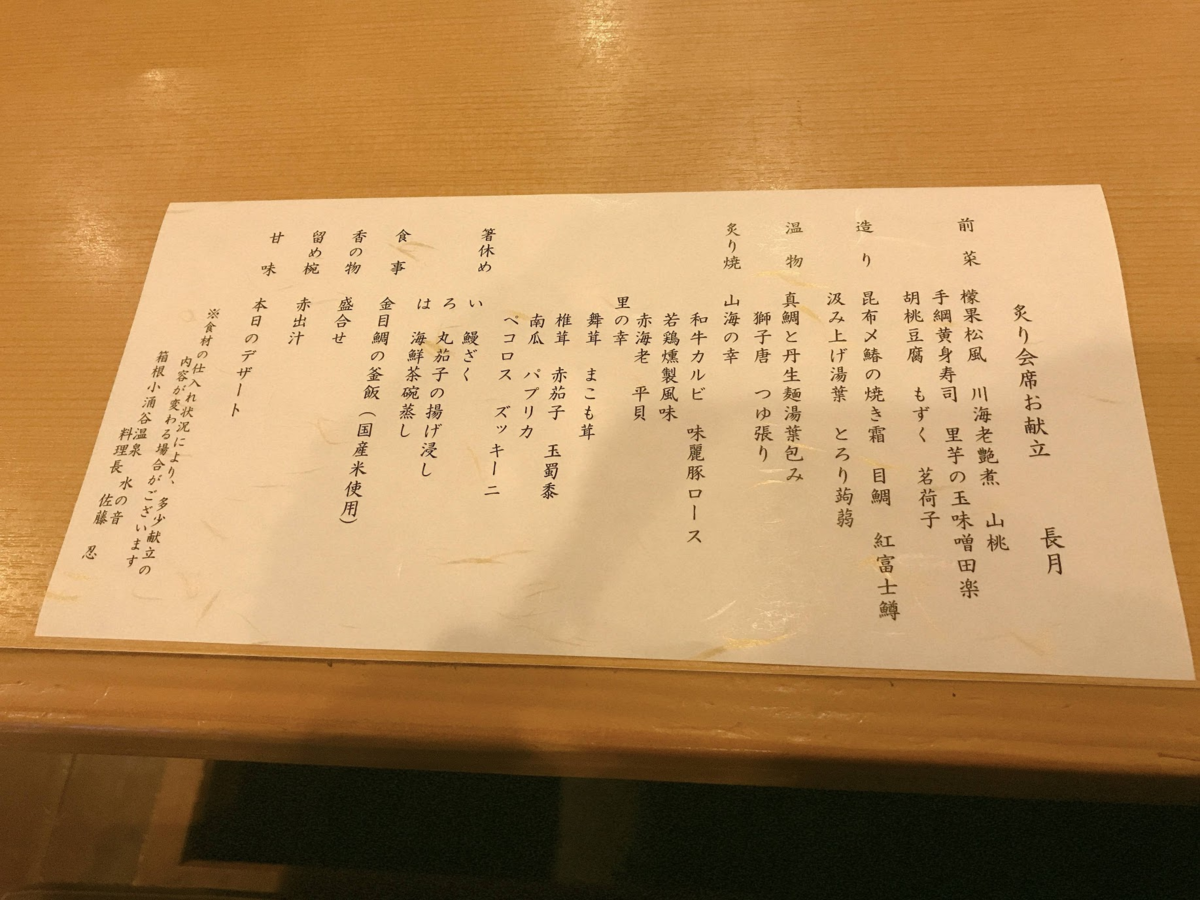 炙り会席お献立 長月
前菜 檬果松風 川海老艶煮 山桃
手綱黄身寿司 里芋の玉味噌田楽
胡桃豆腐 もずく 茗荷子
造り 昆布〆鰆の焼き霜 目鯛 紅富士鱒
汲み上げ湯葉 とろり蒟蒻
温物 真鯛と丹生麺湯葉包み
獅子唐 つゆ張り
炙り焼 山海の幸
和牛カルビ 味麗豚ロース
若鶏燻製風味
赤海老 平貝
里の幸
舞茸 まこも茸
椎茸 赤茄子 玉蜀黍
南瓜 パプリカ
ペコロス ズッキーニ
箸休め い 鰻ざく
ろ 丸茄子の揚げ浸し
は 海鮮茶碗蒸し
食事 金目鯛の釜飯（国産米使用）
香の物 盛合せ
留め椀 赤出汁
甘味 本日のデザート
※食材の仕入れ状況により、多少献立の
内容が変わる場合がございます
箱根小涌谷温泉 水の音
料理長 佐藤 忍